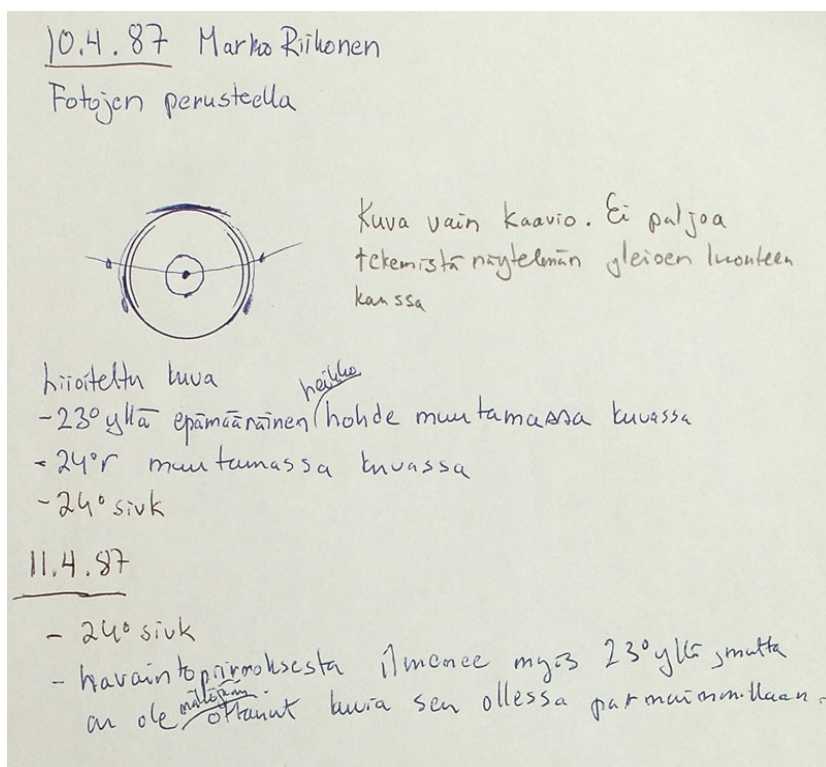 10.4.87 Marko Riikonen
Fotojen perusteella
Kuva vain kaavio. Ei paljoa
tekemistä näytelmän yleisen luonteen
kanssa
liioiteltu kuva
- 23° yllä epämääräinen heikko hohde muutamassa kuvassa
- 24°r muutamassa kuvassa
- 24° sivk
11.4.87
- 24° sivk
- havaintopiirroksesta ilmenee myös 23° yllä, mutta
en ole ottanut kuvia sen ollessa parhaimmillaan.